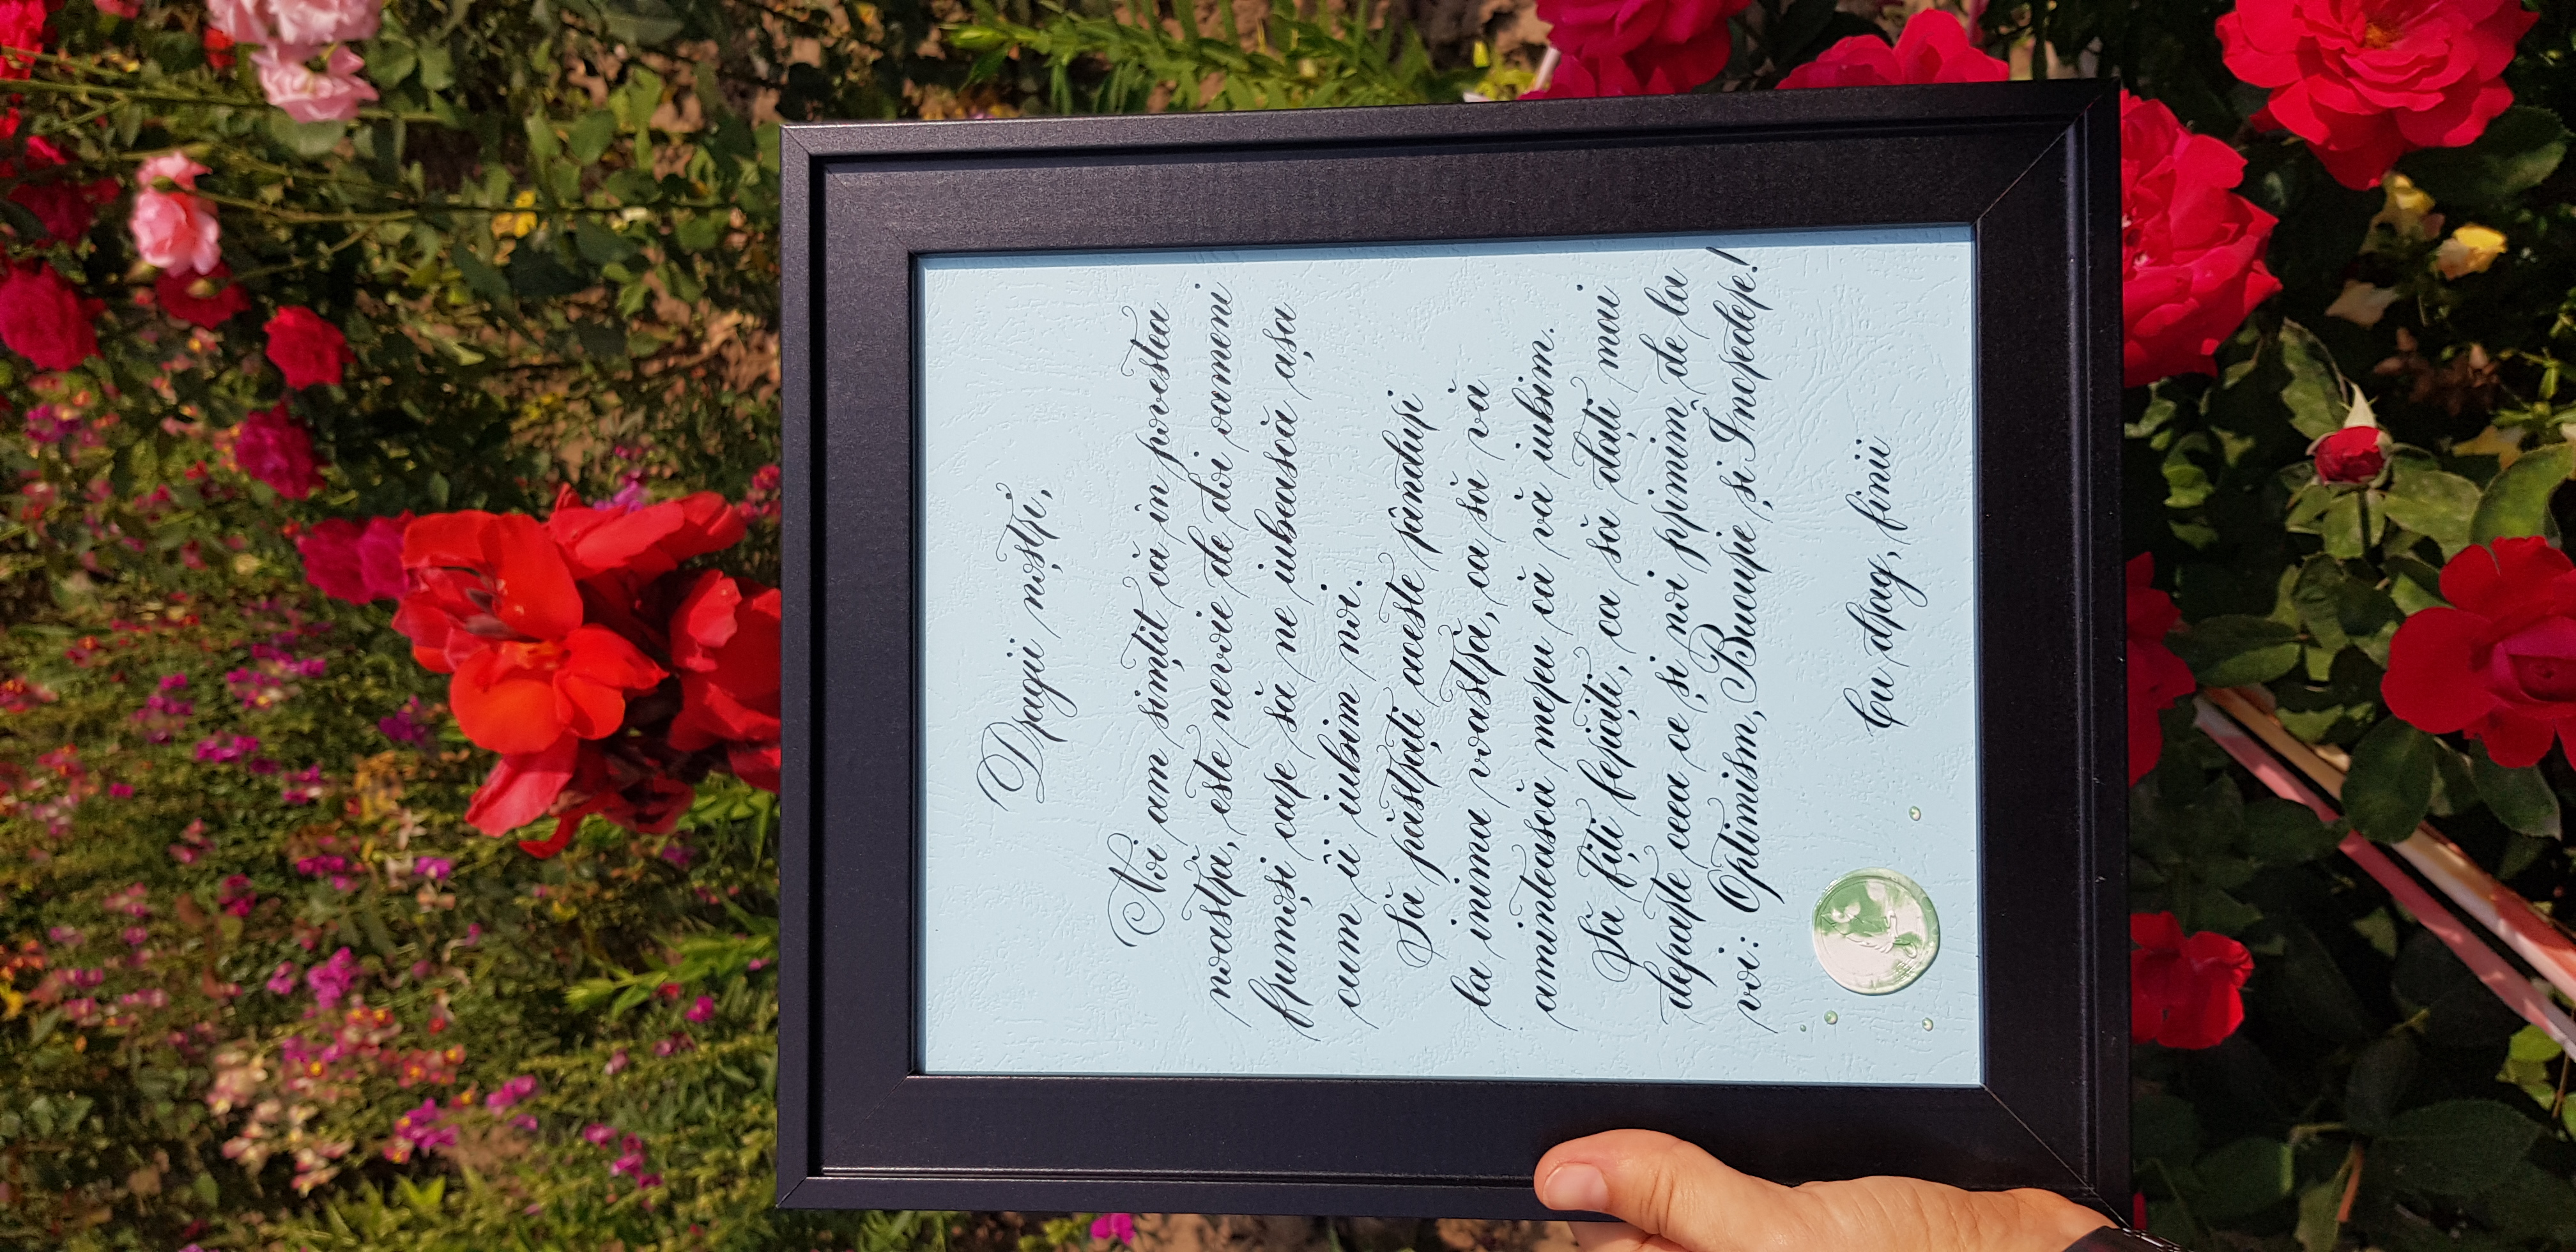 Dragii noștri,
Noi am simțit că în povestea
noastră, este nevoie de doi oameni
frumoși care să ne iubească așa
cum îi iubim noi.
Să păstrați aceste rânduri
la inima voastră, ca să vă
amintească mereu că vă iubim.
Să fiți fericiți, ca să dați mai
departe ceea ce și noi primim de la
voi: Optimism, Bucurie și Încredere!
Cu drag, finii